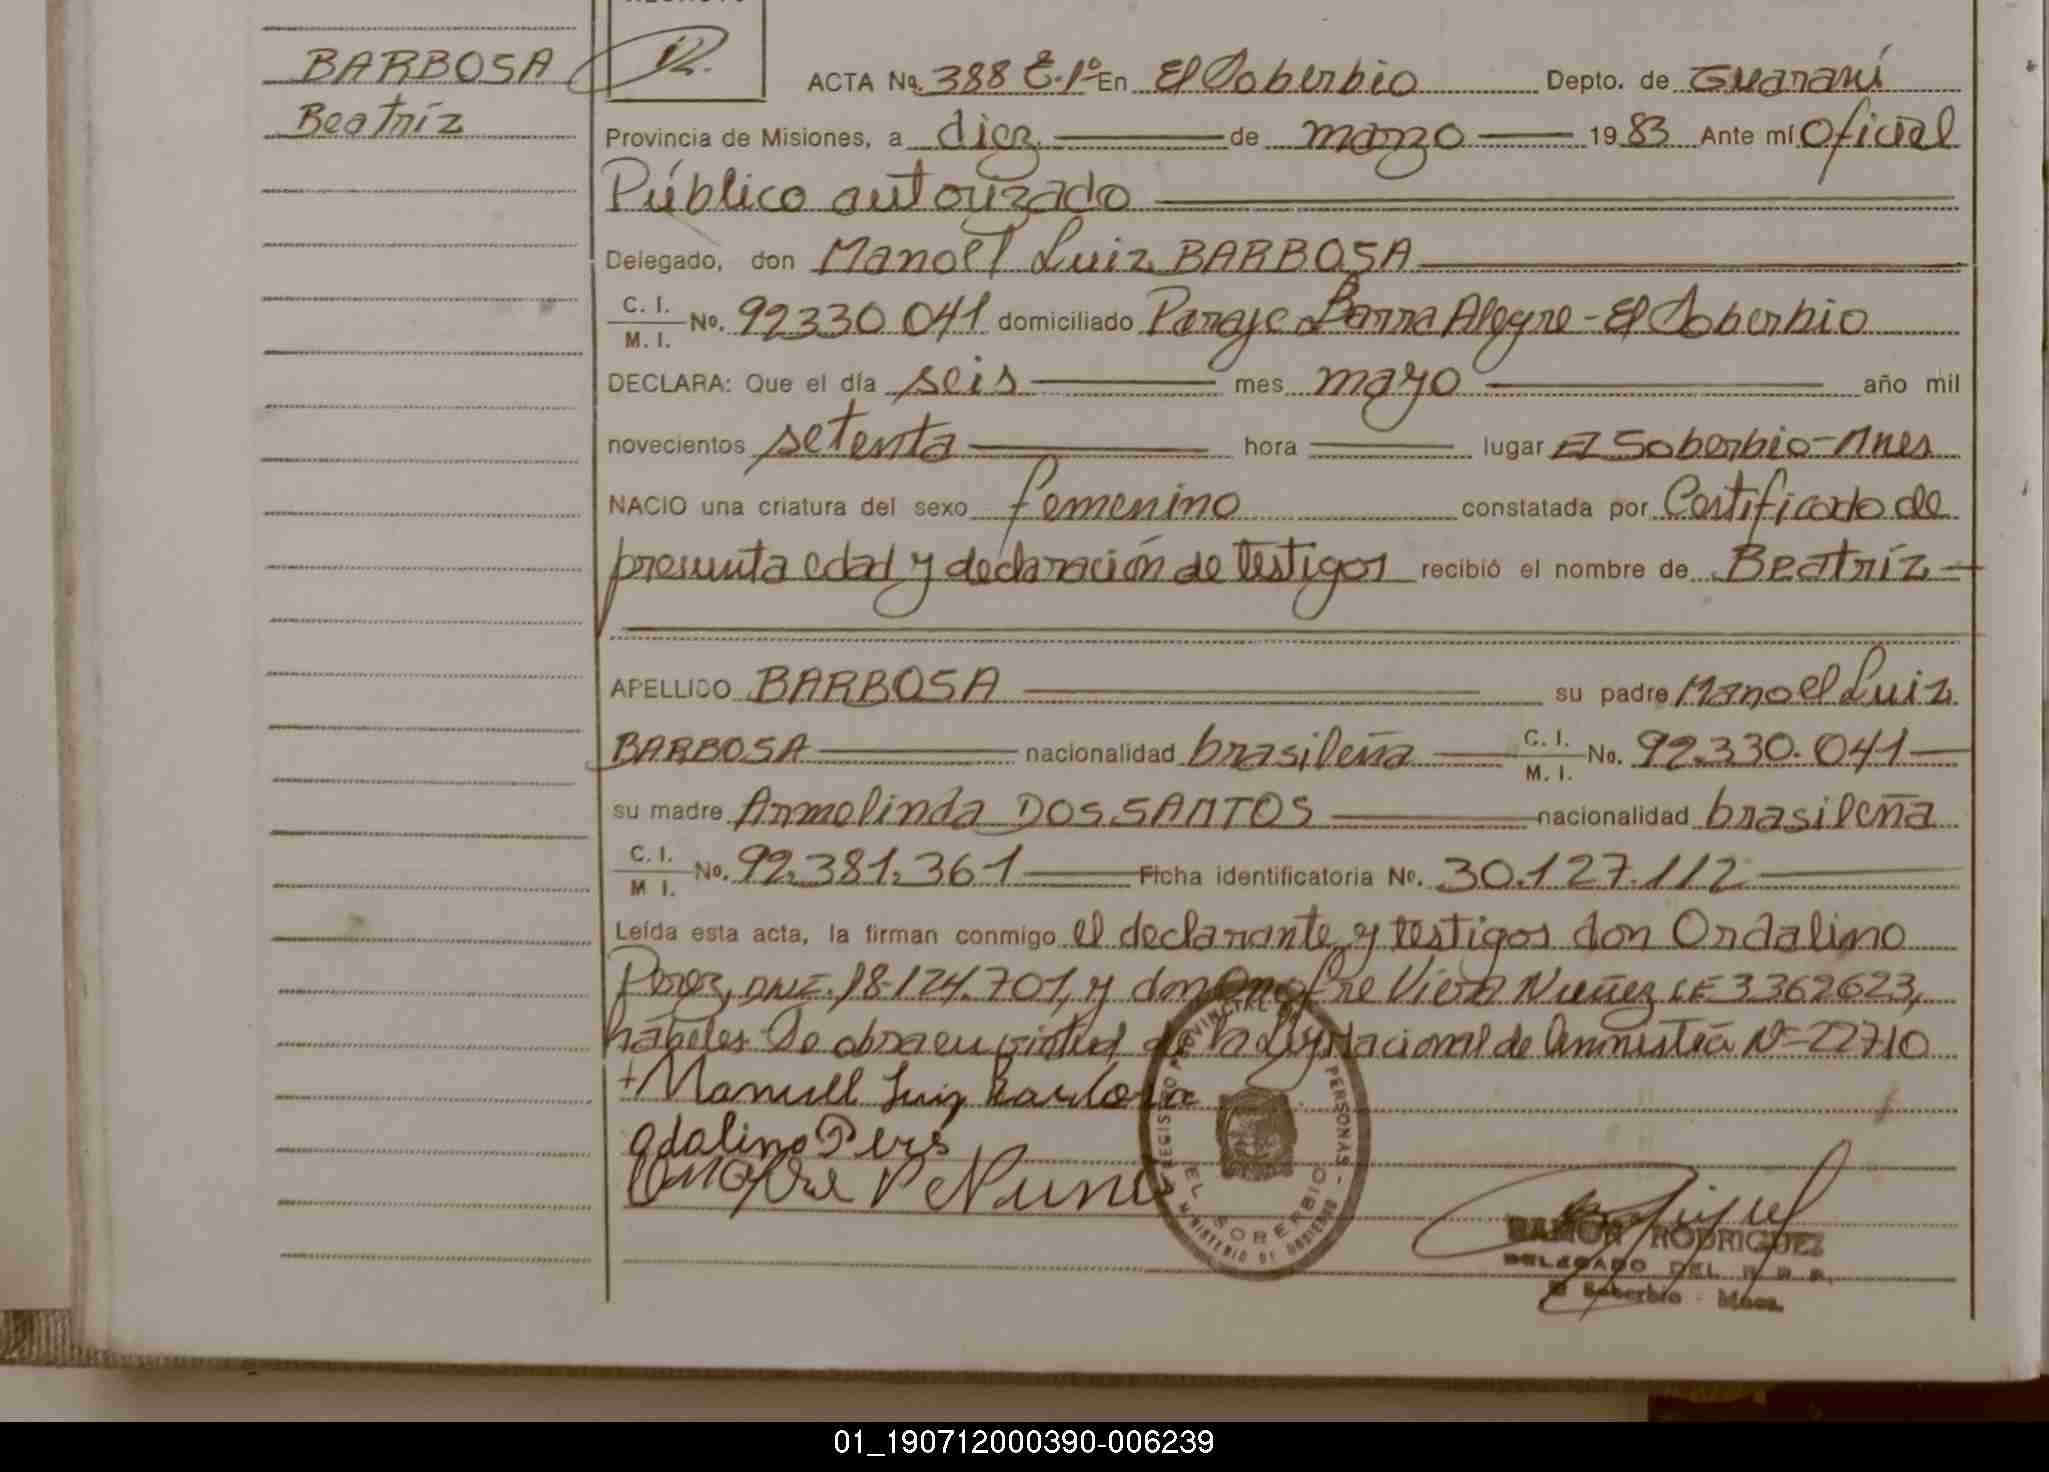 BARBOSA
Beatríz
ACTA No. 388 E. 1º En El Soberbio Depto. de Guaraní
Provincia de Misiones, a diez de marzo 1983 Ante mí Oficial
Público autorizado
Delegado, don Manoel Luiz BARBOSA
C. I. / M. I. No. 92330 041 domiciliado Paraje Barra Alegre - El Soberbio
DECLARA: Que el día seis mes mayo año mil
novecientos setenta hora lugar El Soberbio - Mnes
NACIO una criatura del sexo femenino constatada por Certificado de
presunta edad y declaración de testigos recibió el nombre de Beatríz
APELLIDO BARBOSA su padre Manoel Luiz
BARBOSA nacionalidad brasileña C. I. / M. I. No. 92.330.041
su madre Armelinda DOS SANTOS nacionalidad brasileña
C. I. / M I. No. 92.381.361 Ficha identificatoria No. 30.127.112
Leída esta acta, la firman conmigo el declarante y testigos don Ordalino
Perez, DNI. 18.124.701, y don Onofre Viera Nuñez CE 3362623,
hábeles Se obra en virtud de la Ley Nacional de Amnistía Nº 22710
+Manuell Luiz Barbosa
odalino Peres
Onofre V Nunes
REGISTRO PROVINCIAL DE PERSONAS - MINISTERIO DE GOBIERNO
EL SOBERBIO
RAMON RODRIGUEZ
DELEGADO DEL R. P. P.
El Soberbio - Mnes.
01_190712000390-006239